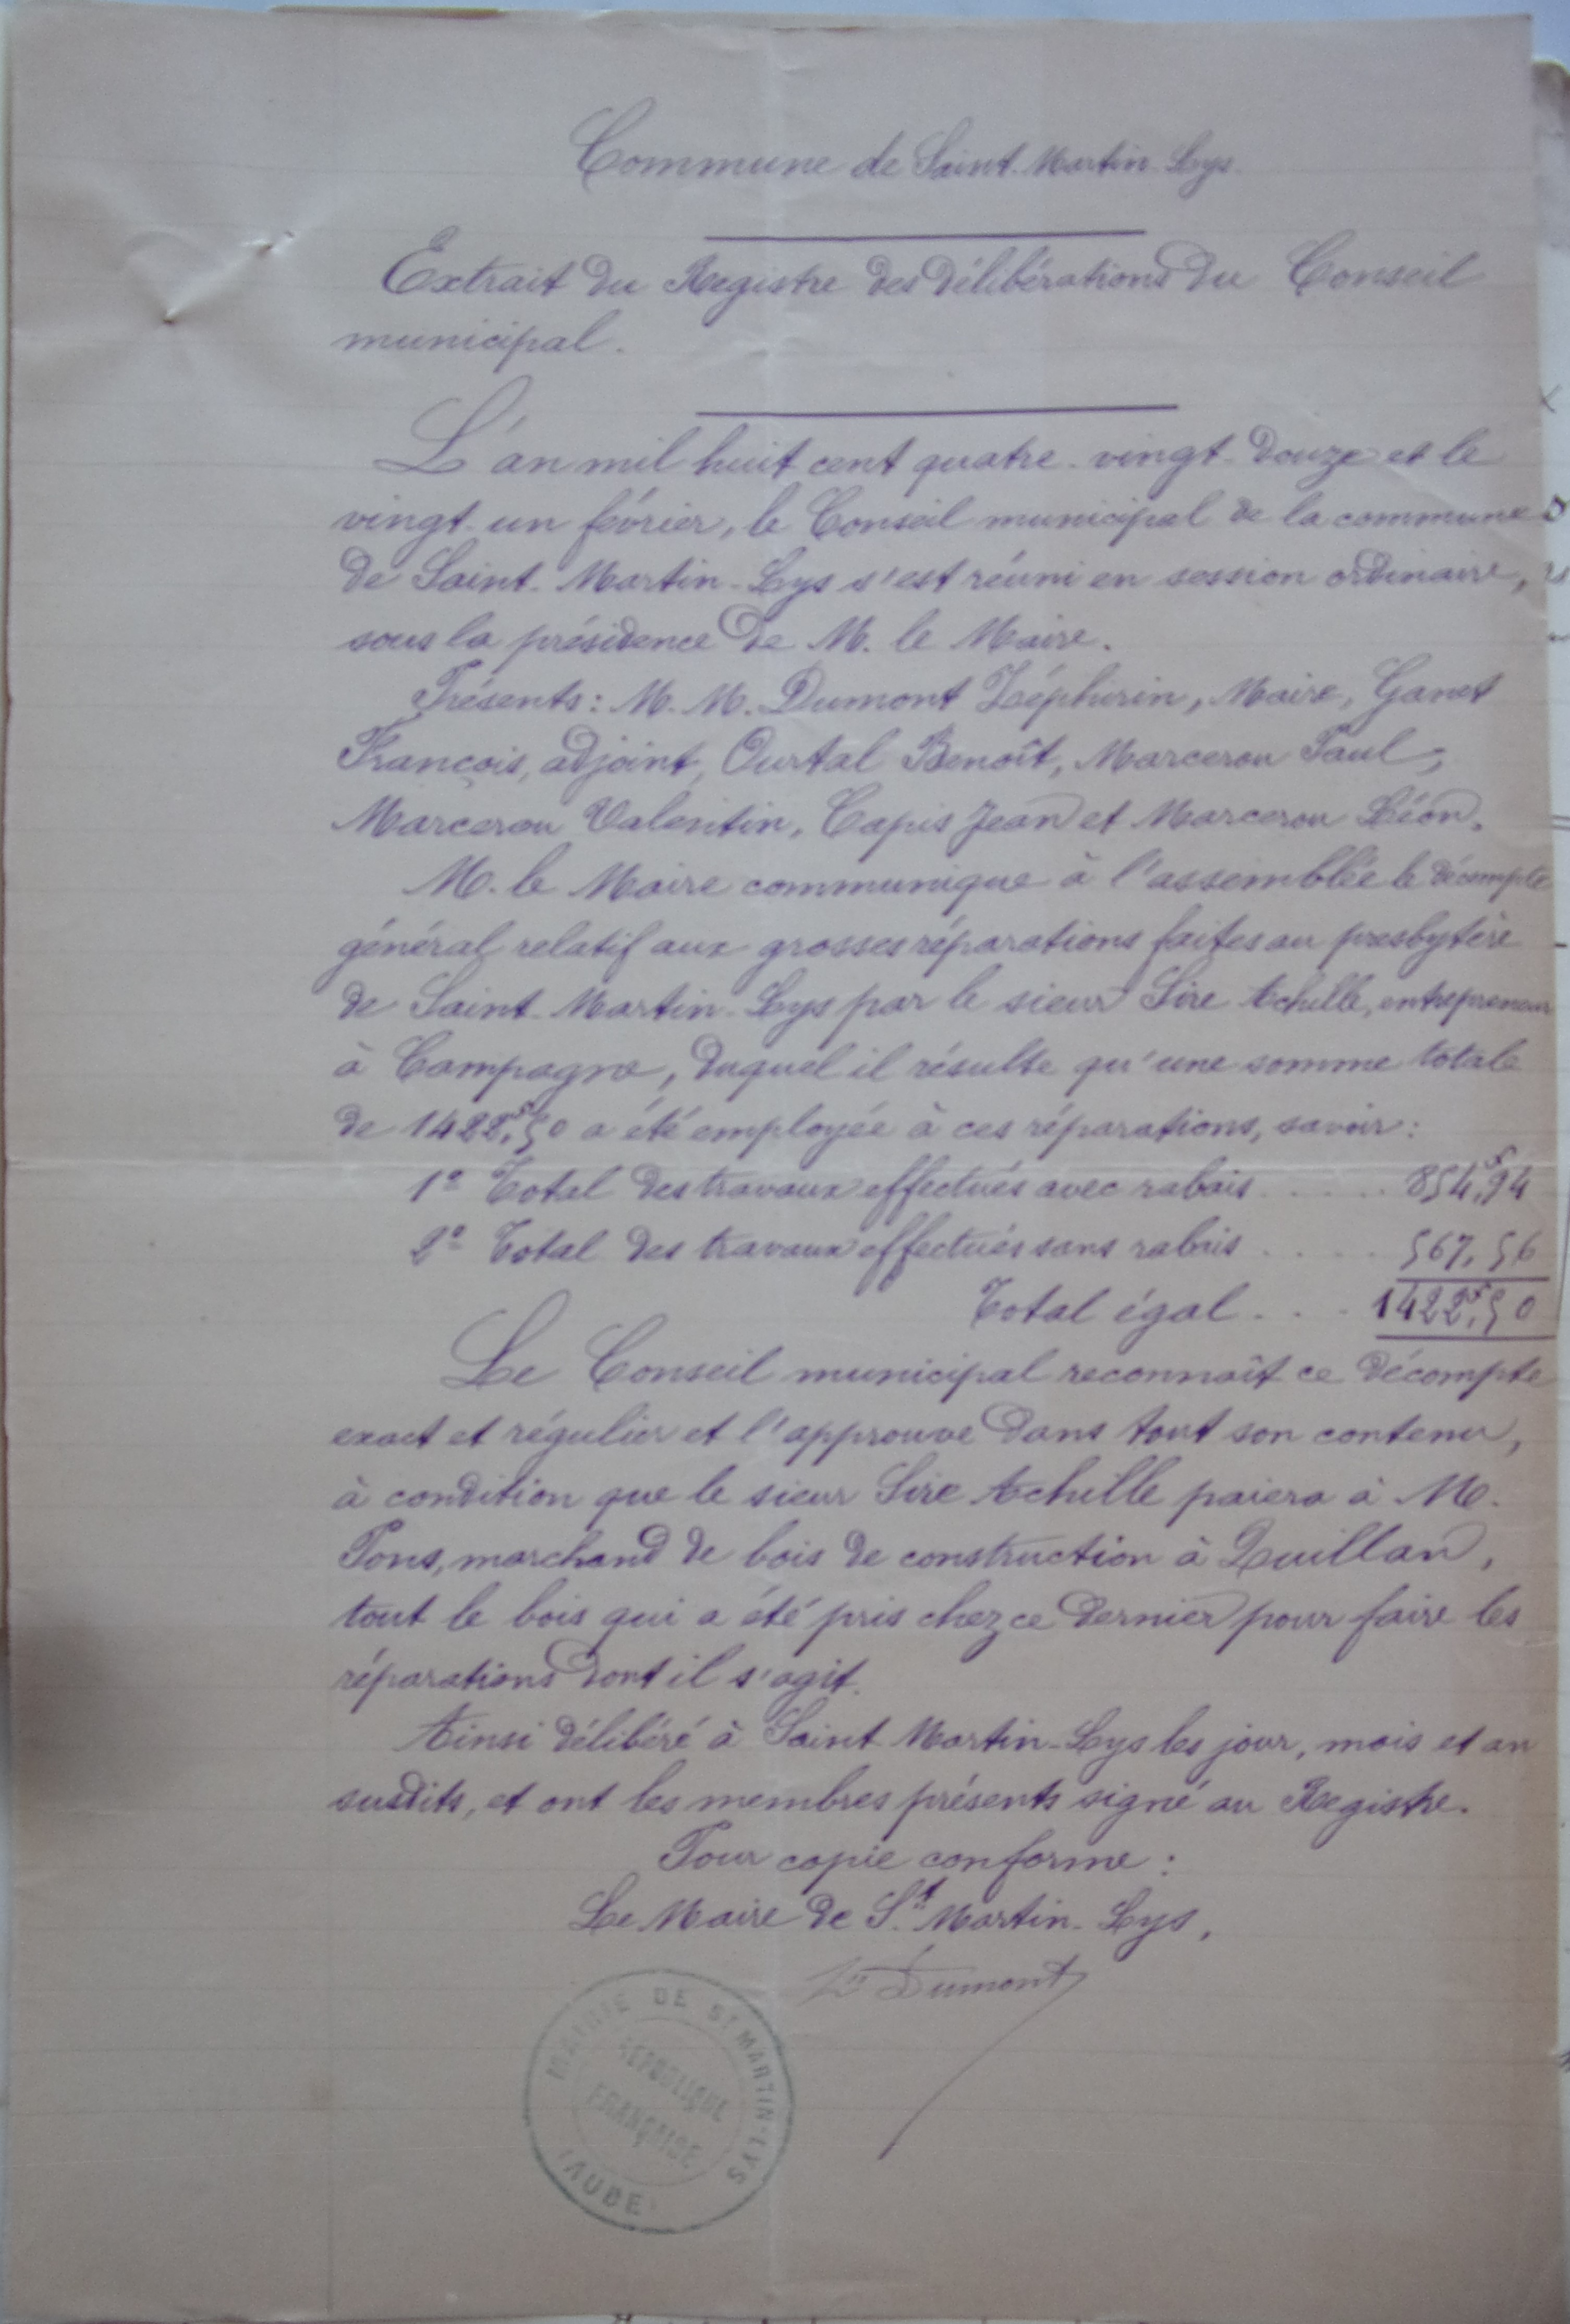 Commune de Saint-Martin-Lys.
Extrait du Registre des délibérations du Conseil
municipal.
L'an mil huit cent quatre-vingt-douze et le
vingt-un février, le Conseil municipal de la commune
de Saint-Martin-Lys s'est réuni en session ordinaire,
sous la présidence de M. le Maire.
Présents: M. M. Dumont Zéphirin, Maire, Ganet
François, adjoint, Ourtal Benoît, Marcerou Paul,
Marcerou Valentin, Capis Jean et Marcerou Léon.
M. le Maire communique à l'assemblée le décompte
général relatif aux grosses réparations faites au presbytère
de Saint-Martin-Lys par le sieur Sire Achille, entrepreneur
à Campagne, duquel il résulte qu'une somme totale
de 1422f,50 a été employée à ces réparations, savoir:
1° Total des travaux effectués avec rabais ..... 854f,94
2° Total des travaux effectués sans rabais .... 567,56
Total égal ... 1422f,50
Le Conseil municipal reconnaît ce décompte
exact et régulier et l'approuve dans tout son contenu,
à condition que le sieur Sire Achille paiera à M.
Pons, marchand de bois de construction à Quillan,
tout le bois qui a été pris chez ce dernier pour faire les
réparations dont il s'agit.
Ainsi délibéré à Saint-Martin-Lys les jour, mois et an
susdits, et ont les membres présents signé au Registre.
Pour copie conforme:
Le Maire de St Martin-Lys,
Dumont
MAIRIE DE ST MARTIN-LYS
RÉPUBLIQUE
FRANÇAISE
(AUDE)